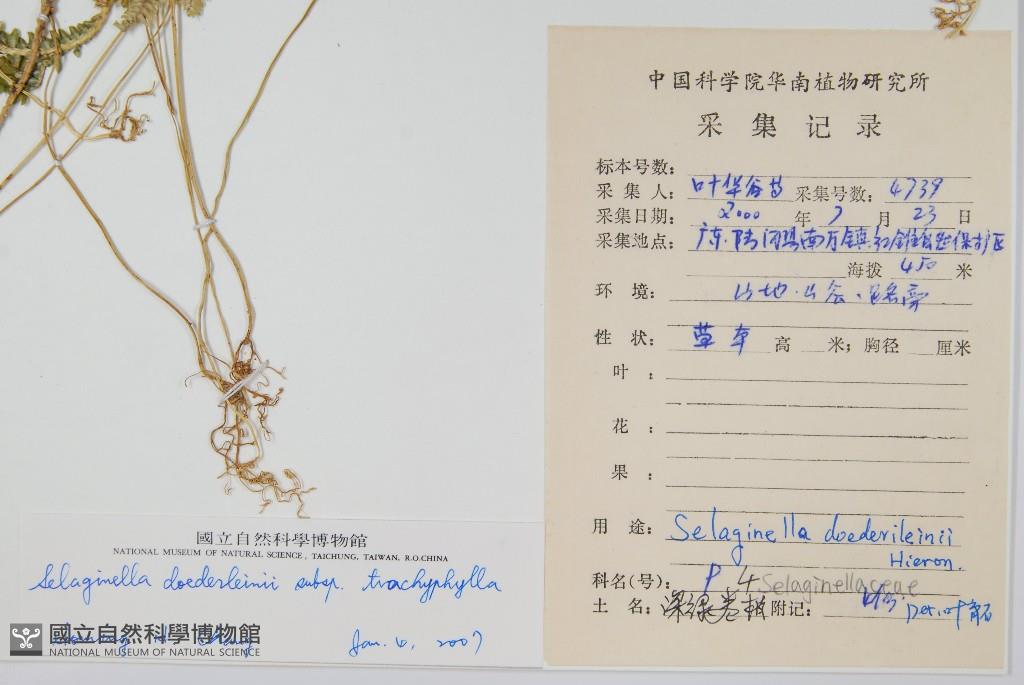 中国科学院华南植物研究所
采集记录
标本号数:
采集人: 叶华谷 采集号数: 4739
采集日期: 2000 年 7 月 23 日
采集地点: 广东·陆河县南万镇 保护区
海拨 450 米
环境: 山地·山谷·
性状: 草本 高 米; 胸径 厘米
叶:
花:
果:
用途: Selaginella doederileinii
Hieron.
科名(号): P. 4 Selaginellaceae
土名: 深绿卷柏 附记: Det. 叶
國立自然科學博物館
NATIONAL MUSEUM OF NATURAL SCIENCE, TAICHUNG, TAIWAN, R.O.CHINA
Selaginella doederleinii subsp. trachyphylla
Jan. 4, 2007
國立自然科學博物館
NATIONAL MUSEUM OF NATURAL SCIENCE